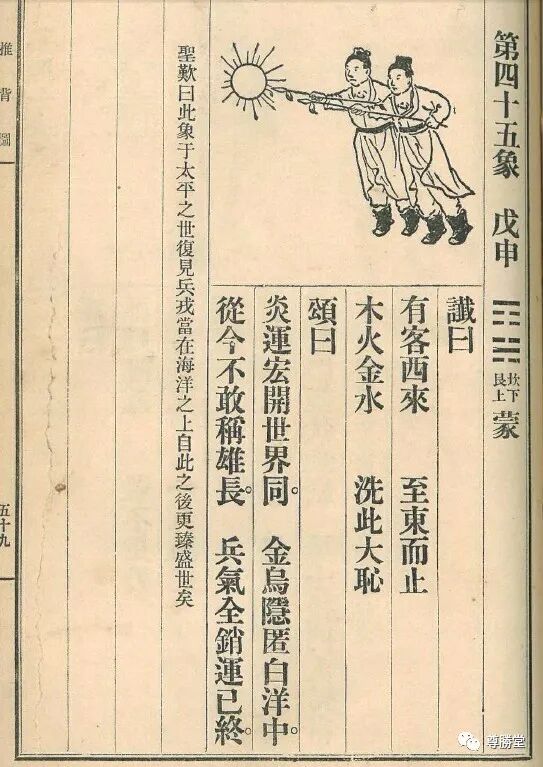 第四十五象　戊申　坎下艮上　蒙
讖曰
有客西來　至東而止
木火金水　洗此大恥
頌曰
炎運宏開世界同。　金烏隱匿白洋中。
從今不敢稱雄長。　兵氣全銷運已終。
聖歎曰此象于太平之世復見兵戎當在海洋之上自此之後更臻盛世矣
推背圖
五十九
尊勝堂